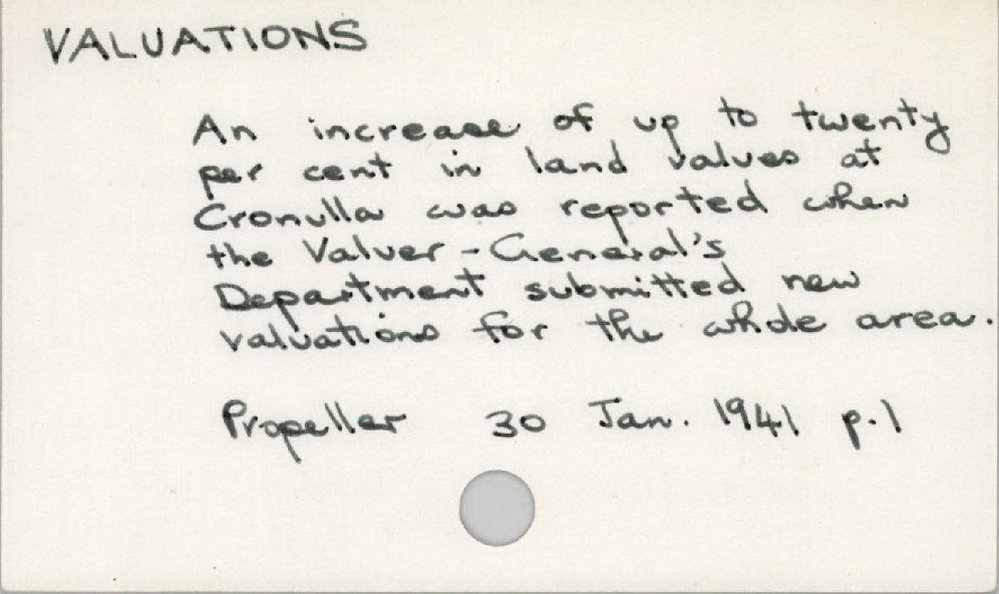 VALUATIONS
An increase of up to twenty
per cent in land values at
Cronulla was reported when
the Valuer-General's
Department submitted new
valuations for the whole area.
Propeller 30 Jan. 1941 p.1